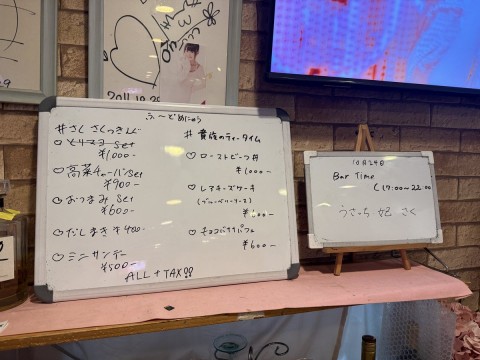 ふ〜どめにゅう
# さく さくっき〜ぱぐ
♡ とりマヨ Set
¥1000-
♡ 高菜チャーハン Set
¥900-
♡ おつまみ Set
¥600-
♡ だしまき 400-
♡ ミニサンデー
¥500-
ALL + TAX!!
# 貴族のティータイム
♡ ローストビーフ丼
¥1000-
♡ レアチーズケーキ
(ブルーベリーソース)
♡ チョコバナナパフェ
¥600-
10月24日
Bar Time
(17:00〜22:00
うさっち 妃 さく
2011.10.29